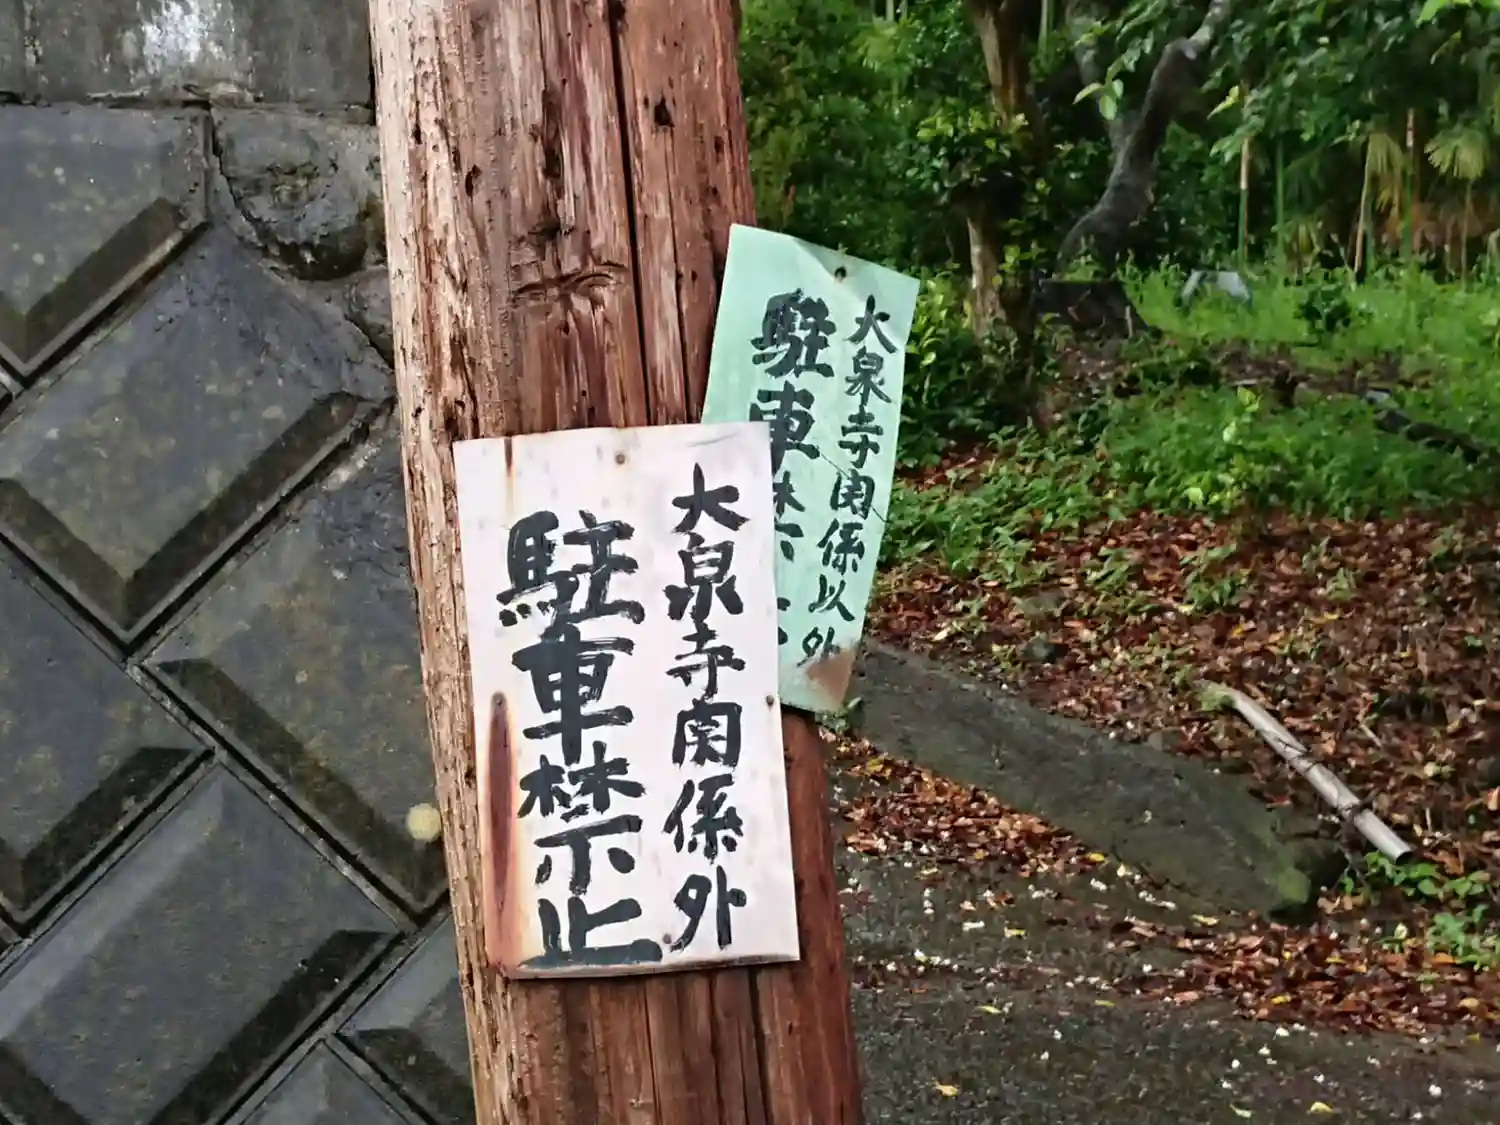 大泉寺関係外
駐車禁止
大泉寺関係以外
駐車禁止